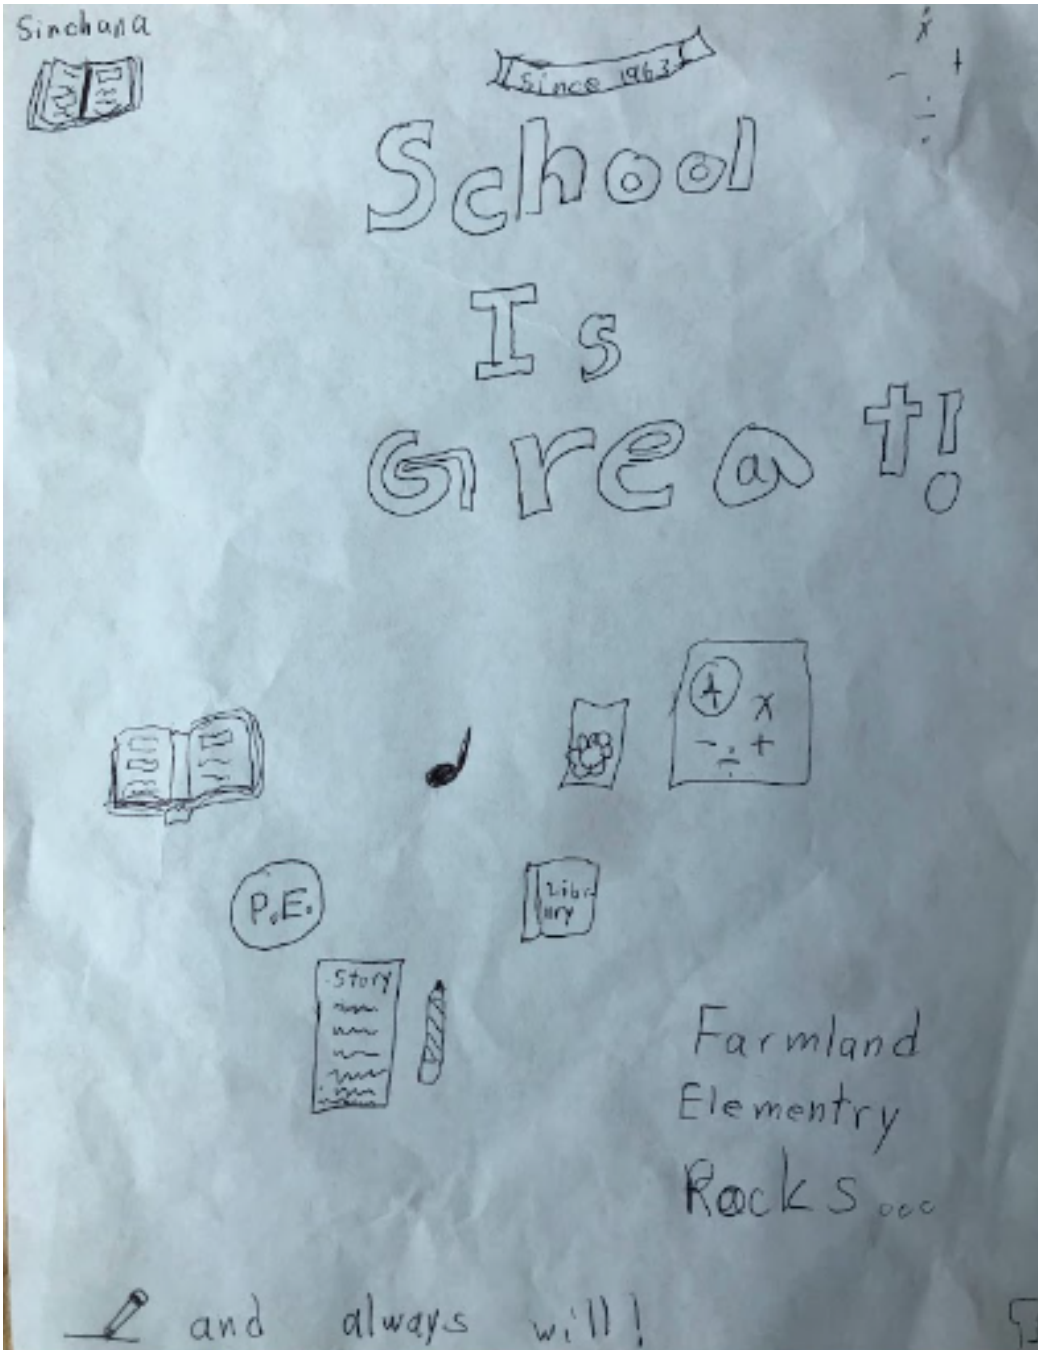 Sinchana
Since 1963
School
Is
Great!
A
x
- ÷ +
P.E.
Libr
ary
Story
Farmland
Elementry
Rocks...
and always will!